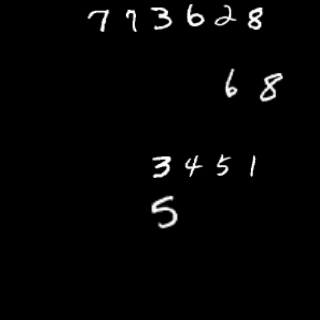 773628
68
3451
5